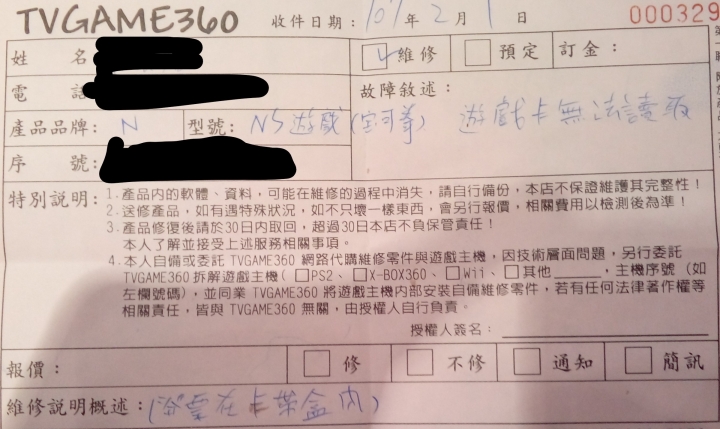 TVGAME360 收件日期：107年2月1日 000329
姓名 ✓維修 □預定 訂金：
電話 故障敘述：
產品品牌：N 型號：NS遊戲(宝可夢) 遊戲卡無法讀取
序號：
特別説明：1.產品内的軟體、資料，可能在維修的過程中消失，請自行備份，本店不保證維護其完整性！
2.送修產品，如有遇特殊狀況，如不只壞一樣東西，會另行報價，相關費用以檢測後為準！
3.產品修復後請於30日内取回，超過30日本店不負保管責任！
本人了解並接受上述服務相關事項。
4.本人自備或委託 TVGAME360 網路代購維修零件與遊戲主機，因技術層面問題，另行委託
TVGAME360 拆解遊戲主機(□PS2、□X-BOX360、□Wii、□其他______，主機序號（如
左欄號碼)，並同業 TVGAME360 將遊戲主機内部安裝自備維修零件，若有任何法律著作權等
相關責任，皆與 TVGAME360 無關，由授權人自行負責。
授權人簽名：
報價： □修 □不修 □通知 □簡訊
維修説明概述：(在卡帶盒内)